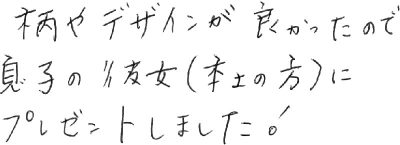 柄やデザインが良かったので
息子の彼女(本土の方)に
プレゼントしました!